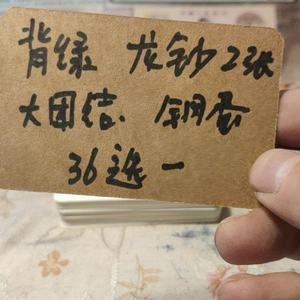 背绿 龙钞2张
大团结. 钢蛋
36选一